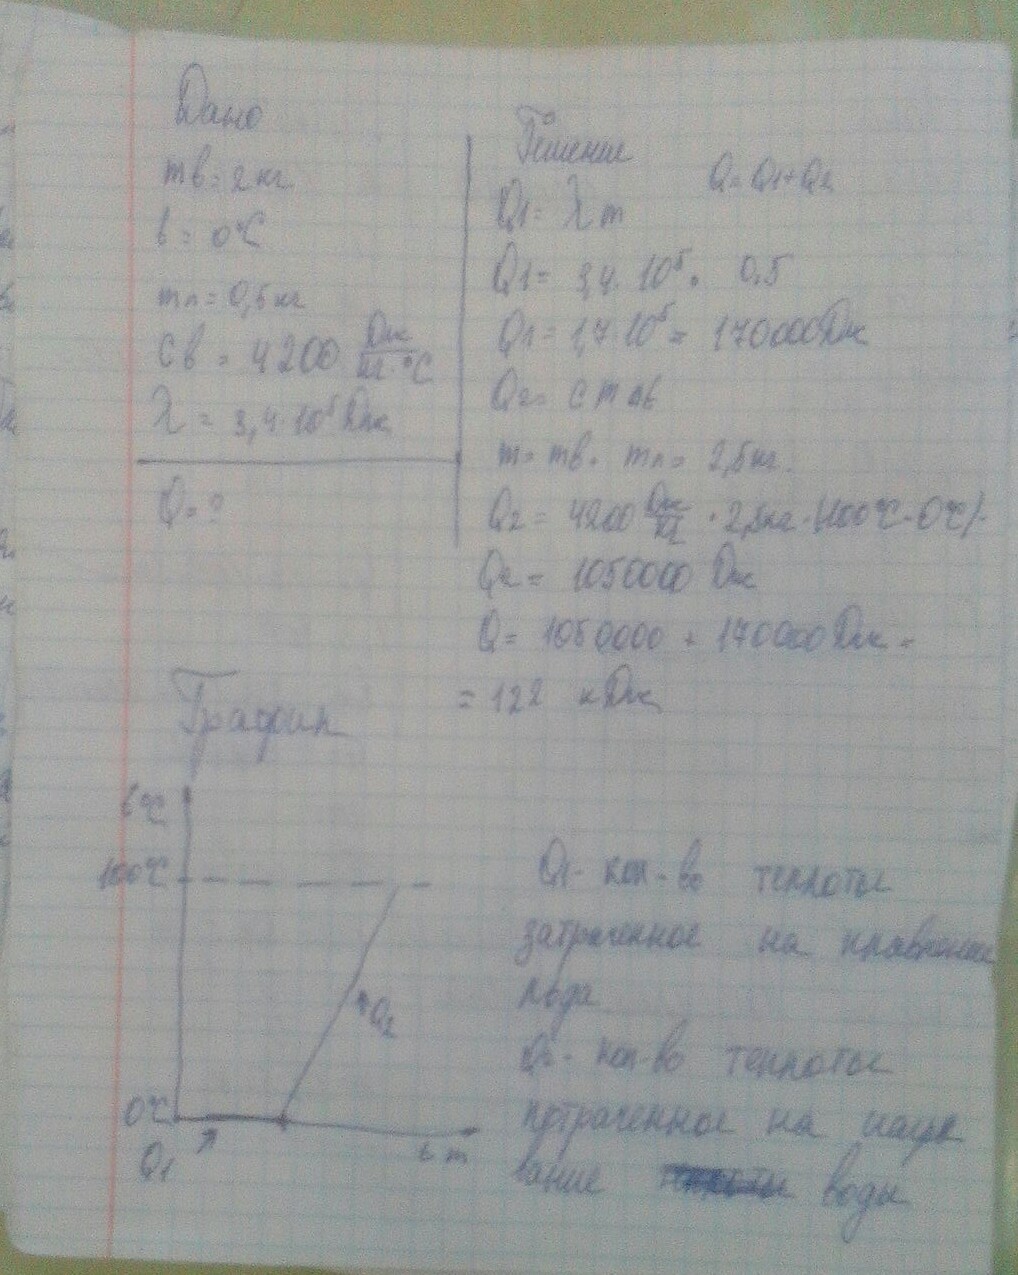 Дано
mв = 2 кг
t = 0°C
mл = 0,5 кг
Cв = 4200 Дж/кг·°C
λ = 3,4·10⁵ Дж
Q = ?
Решение
Q = Q1 + Q2
Q1 = λm
Q1 = 3,4·10⁵· 0,5
Q1 = 1,7·10⁵ = 170000 Дж
Q2 = cmΔt
m = mв + mл = 2,5 кг.
Q2 = 4200 Дж/кг · 2,5кг·(100°C - 0°C) =
Q2 = 1050000 Дж
Q = 1050000 + 170000 Дж =
= 122 кДж
График
t°C
100°C
Q2
0°C
Q1
t m
Q1 - кол-во теплоты
затраченное на плавление
льда
Q2 - кол-во теплоты
потраченное на нагре
вание воды